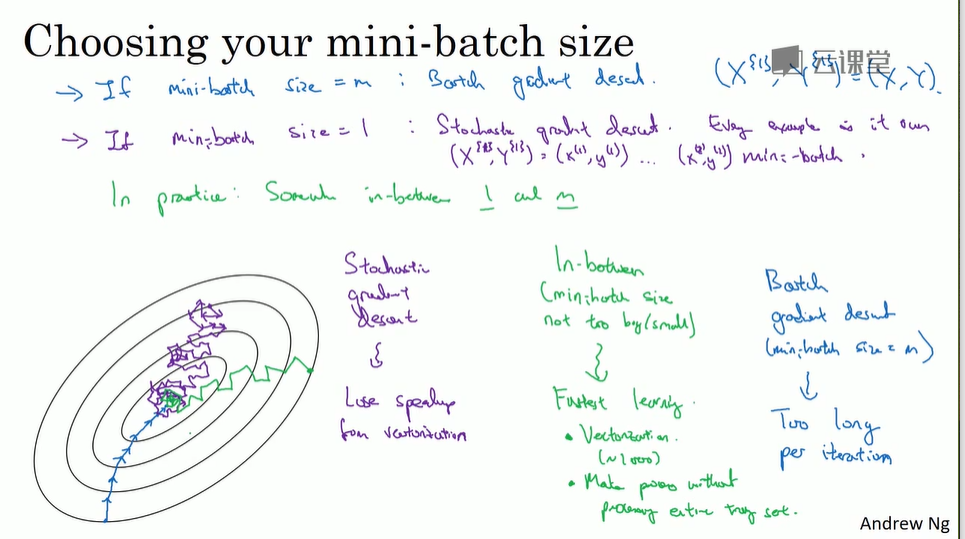 Choosing your mini-batch size
→ If mini-batch size = m : Batch gradient descent. (X^{1}, Y^{1}) = (X, Y).
云课堂
→ If mini-batch size = 1 : Stochastic gradient descent. Every example is it own
(X^{1}, Y^{1}) = (x^(1), y^(1)) ... (x^(2), y^(2)) mini-batch.
In practice: Somewhere in-between 1 and m
Stochastic
gradient
descent
Lose speedup
from vectorization
In-between
(mini-batch size
not too big/small)
Fastest learning.
• Vectorization.
(~1000)
• Make progress without
processing entire training set.
Batch
gradient descent
(mini-batch size = m)
Too long
per iteration
Andrew Ng